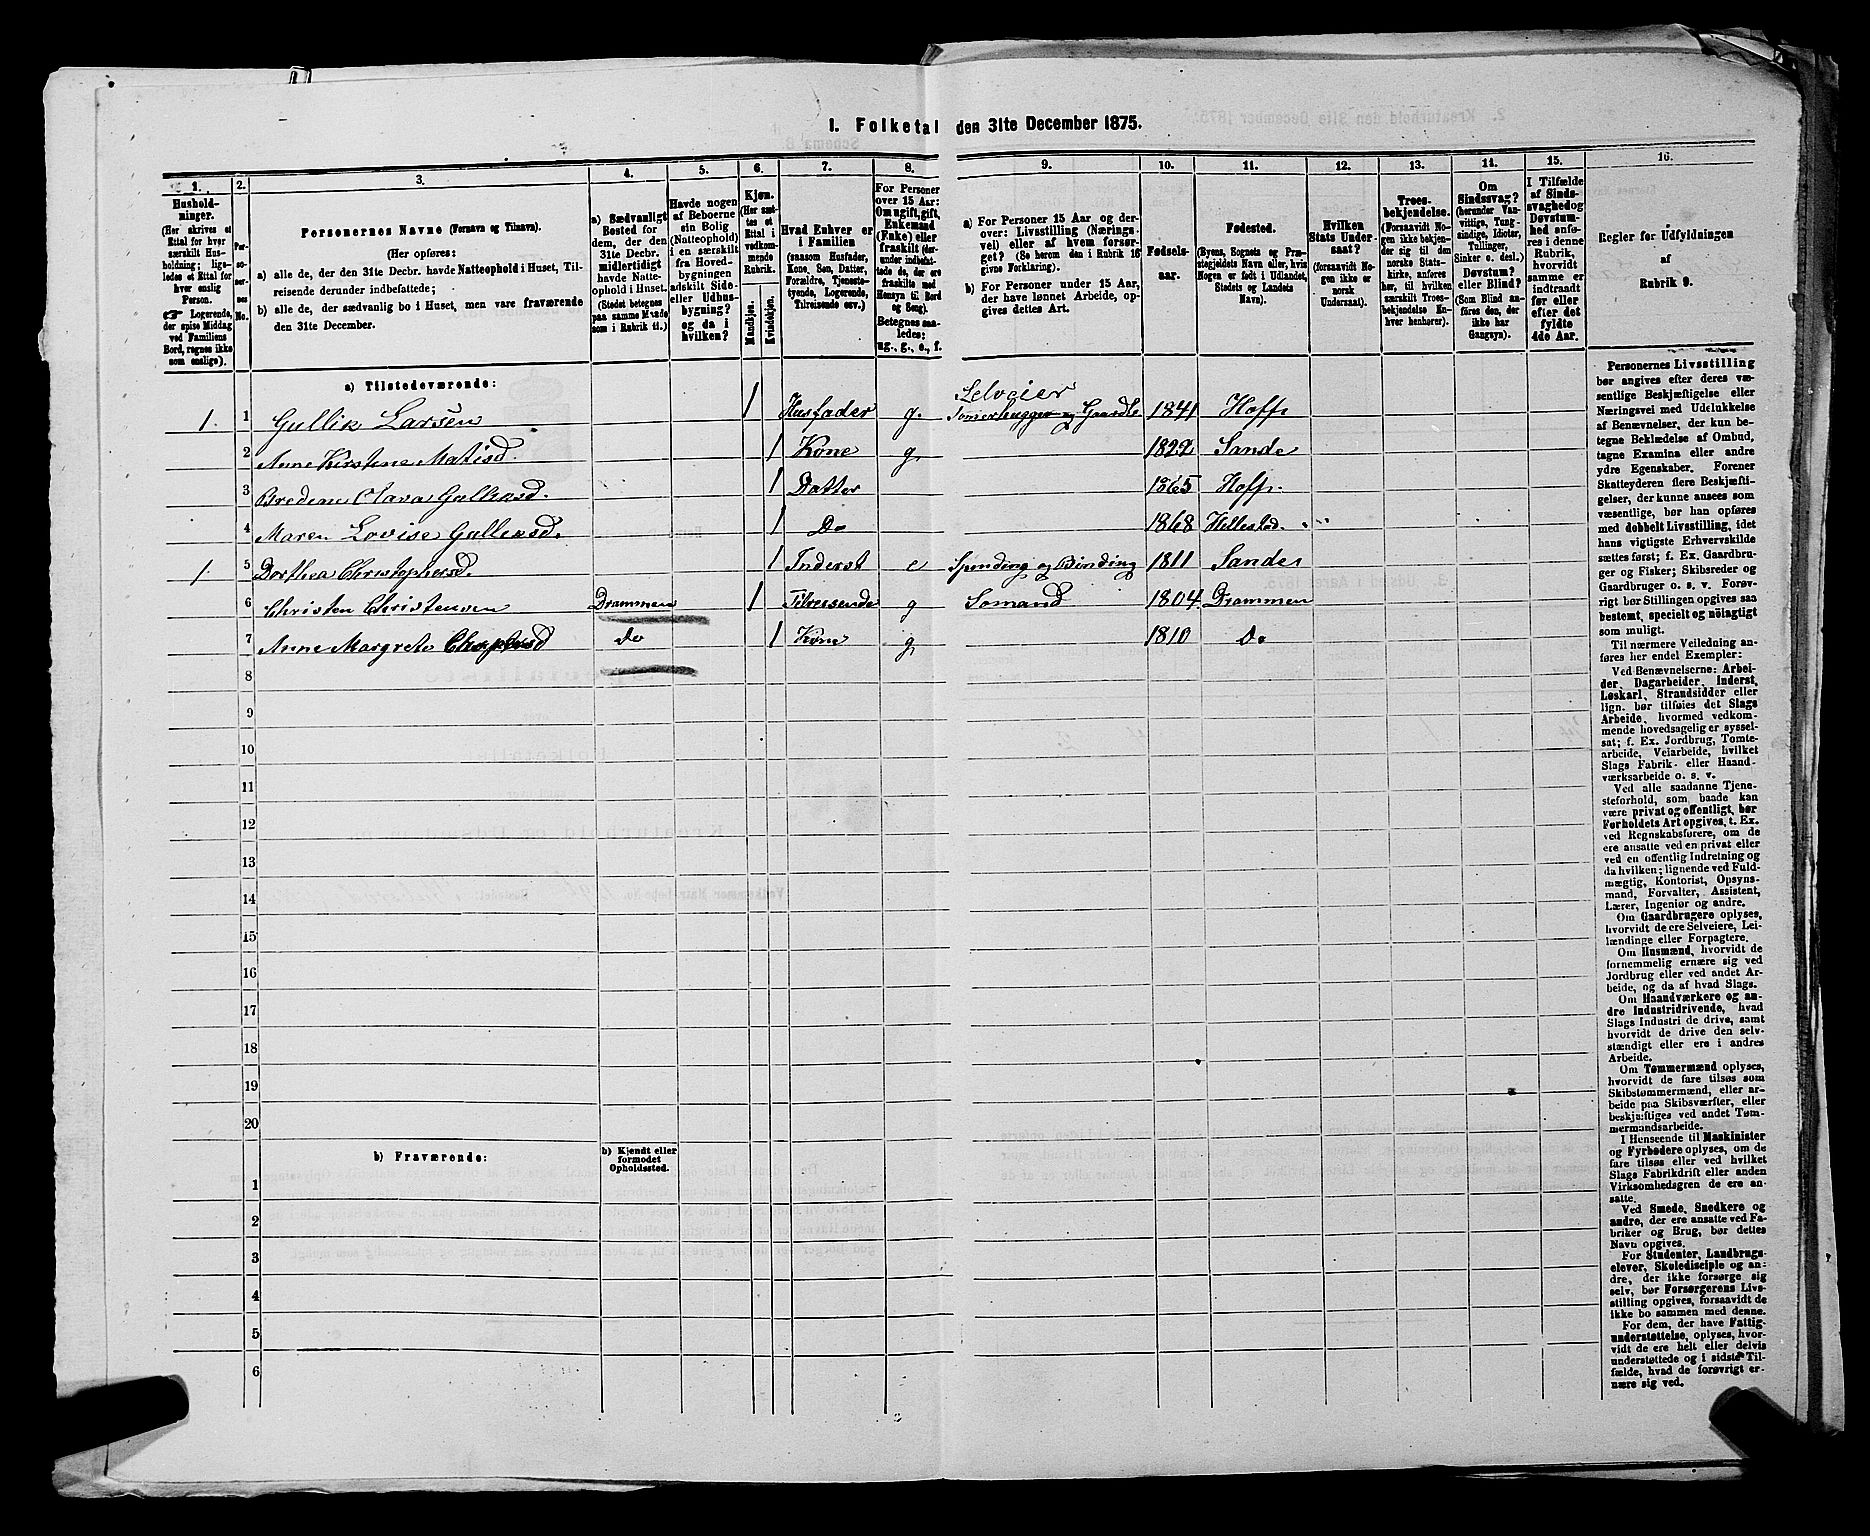 1. Folketal den 31te December 1875.
1.
Hushold-
ninger.
(Her skrives et
Ettal for hver
særskilt Hus-
holdning; lige-
ledes et Ettal for
hver enslig
Person.
☞ Logerende,
der spise Middag
ved Familiens
Bord, regnes ikke
som enslige).
2.
Per-
so-
ner-
nes
No.
3.
Personernes Navne (Fornavn og Tilnavn).
(Her opføres:
a) alle de, der den 31te Decbr. havde Natteophold i Huset, Til-
reisende derunder indbefattede;
b) alle de, der sædvanlig bo i Huset, men vare fraværende
den 31te December.
4.
a) Sædvanligt
Bosted for
dem, der den
31te Decbr.
midlertidigt
havde Natte-
ophold i Huset.
(Stedet betegnes
paa samme Maade
som i Rubrik 11.)
5.
Havde nogen
af Beboerne
sin Bolig
(Natteophold)
i en særskilt
fra Hoved-
bygningen
adskilt Side-
eller Udhus-
bygning?
og da i
hvilken?
6.
Kjøn.
(Her sæt-
tes et
Ettal i
vedkom-
mende
Rubrik.
Mandkjøn.
Kvindekjøn.
7.
Hvad Enhver er
i Familien
(saasom Husfader,
Kone, Søn, Datter,
Forældre, Tjeneste-
tyende, Logerende,
Tilreisende osv.)
8.
For Personer
over 15 Aar:
Om ugift, gift,
Enkemand
(Enke) eller
fraskilt (her-
under indbefat-
tede de, der ere
fraskilte med
Hensyn til Bord
og Seng).
Betegnes saa-
ledes:
ug., g., e., f.
9.
a) For Personer 15 Aar og der-
over: Livsstilling (Nærings-
vei) eller af hvem forsør-
get? (Se herom den i Rubrik 16
givne Forklaring).
b) For Personer under 15 Aar,
der have lønnet Arbeide, op-
gives dettes Art.
10.
Fødsels-
aar.
11.
Fødested.
(Byens, Sognets og Præ-
stegjeldets Navn eller, hvis
Nogen er født i Udlandet,
Stedets og Landets
Navn).
12.
Hvilken
Stats Under-
saat?
(forsaavidt No-
gen ikke er
norsk
Undersaat).
13.
Troes-
bekjendelse.
(Forsaavidt No-
gen ikke bekjen-
der sig til den
norske Stats-
kirke, anføres
her, til hvilken
særskilt Troes-
bekjendelse En-
hver henhører).
14.
Om
Sindssvag?
(herunder Van-
vittige, Tung-
sindige, Idioter,
Tullinger,
Sinker o. desl.)
Døvstum?
eller Blind?
(Som Blind an-
føres den, der
ikke har
Gangsyn).
15.
I Tilfælde
af Sinds-
svaghed og
Døvstum-
hed anfø-
res i denne
Rubrik,
hvorvidt
samme er
indtraadt
før eller
efter det
fyldte
4de Aar.
16.
Regler for Udfyldningen
af
Rubrik 9.
a) Tilstedeværende:
Selveier
1. 1 Gullik Larsen 1 Husfader g. Tømerhugger og Gaardb 1841 Hoff
2 Anne Kirstine Matisd. 1 Kone g. 1822 Sande
3 Gulliksd. 1 Datter 1865 Hoff.
4 Maren Lovise Gulliksd. 1 Do 1868 Hillestad.
1. 5 Dorthea Christophersd. 1 Inderst e Spinding og Binding 1811 Sande
6 Christen Christensen Drammen 1 Tilreisende g Sømand 1804 Drammen
7 Anne Margrete do 1 Kone g. 1810 Do
8
9
10
11
12
13
14
15
16
17
18
19
20
b) Fraværende:
b) Kjendt eller
formodet
Opholdssted.
1
2
3
4
5
6
Personernes Livsstilling
bør angives efter deres væ-
sentlige Beskjæftigelse eller
Næringsvei med Udelukkelse
af Benævnelser, der kun be-
tegne Beklædelse af Ombud,
tagne Examina eller andre
ydre Egenskaber. Forener
Skatteyderen flere Beskjæfti-
gelser, der kunne ansees som
væsentlige, bør han opføres
med dobbelt Livsstilling, idet
hans vigtigste Erhvervskilde
sættes først; f. Ex. Gaardbru-
ger og Fisker; Skibsreder og
Gaardbruger o. s. v. Forøv-
rigt bør Stillingen opgives saa
bestemt, specielt og nøiagtigt
som muligt.
Til nærmere Veiledning an-
føres her endel Exempler:
Ved Benævnelserne: Arbei-
der, Dagarbeider, Inderst,
Løskarl, Strandsidder eller
lign. bør tilføies det Slags
Arbeide, hvormed vedkom-
mende hovedsagelig er syssel-
sat; f. Ex. Jordbrug, Tomte-
arbeide, Veiarbeide, hvilket
Slags Fabrik- eller Haand-
værksarbeide o. s. v.
Ved alle saadanne Tjene-
steforhold, som baade kan
være privat og offentligt, bør
Forholdets Art opgives, t. Ex.
ved Regnskabsførere, om de
ere ansatte ved en privat eller
ved en offentlig Indretning og
da hvilken; lignende ved Fuld-
mægtig, Kontorist, Opsyns-
mand, Forvalter, Assistent,
Lærer, Ingeniør og andre.
Om Gaardbrugere oplyses,
hvorvidt de ere Selveiere, Lei-
lændinge eller Forpagtere.
Om Husmænd, hvorvidt de
fornemmelig ernære sig ved
Jordbrug eller ved andet Ar-
beide, og da af hvad Slags.
Om Haandværkere og an-
dre Industridrivende, hvad
Slags Industri de drive, samt
hvorvidt de drive den selv-
stændigt eller ere i andres
Arbeide.
Om Tømmermænd oplyses,
hvorvidt de fare tilsøs som
Skibstømmermænd, eller ar-
beide paa Skibsværfter, eller
beskjæftiges ved andet Tøm-
mermandsarbeide.
I Henseende til Maskinister
og Fyrbødere oplyses, om de
fare tilsøs eller ved hvilket
Slags Fabrikdrift eller anden
Virksomhedsgren de ere an-
satte.
Ved Smede, Snedkere og
andre, der ere ansatte ved Fa-
briker og Brug, bør dettes
Navn opgives.
For Studenter, Landbrugs-
elever, Skoledisciple og an-
dre, der ikke forsørge sig
selv, bør Forsørgerens Livs-
stilling opgives, forsaavidt de
ikke bo sammen med denne.
For dem, der have Fattig-
understøttelse, oplyses, hvor-
vidt de ere helt eller delvis
understøttede og i sidste Til-
fælde, hvad de forøvrigt er-
nære sig ved.